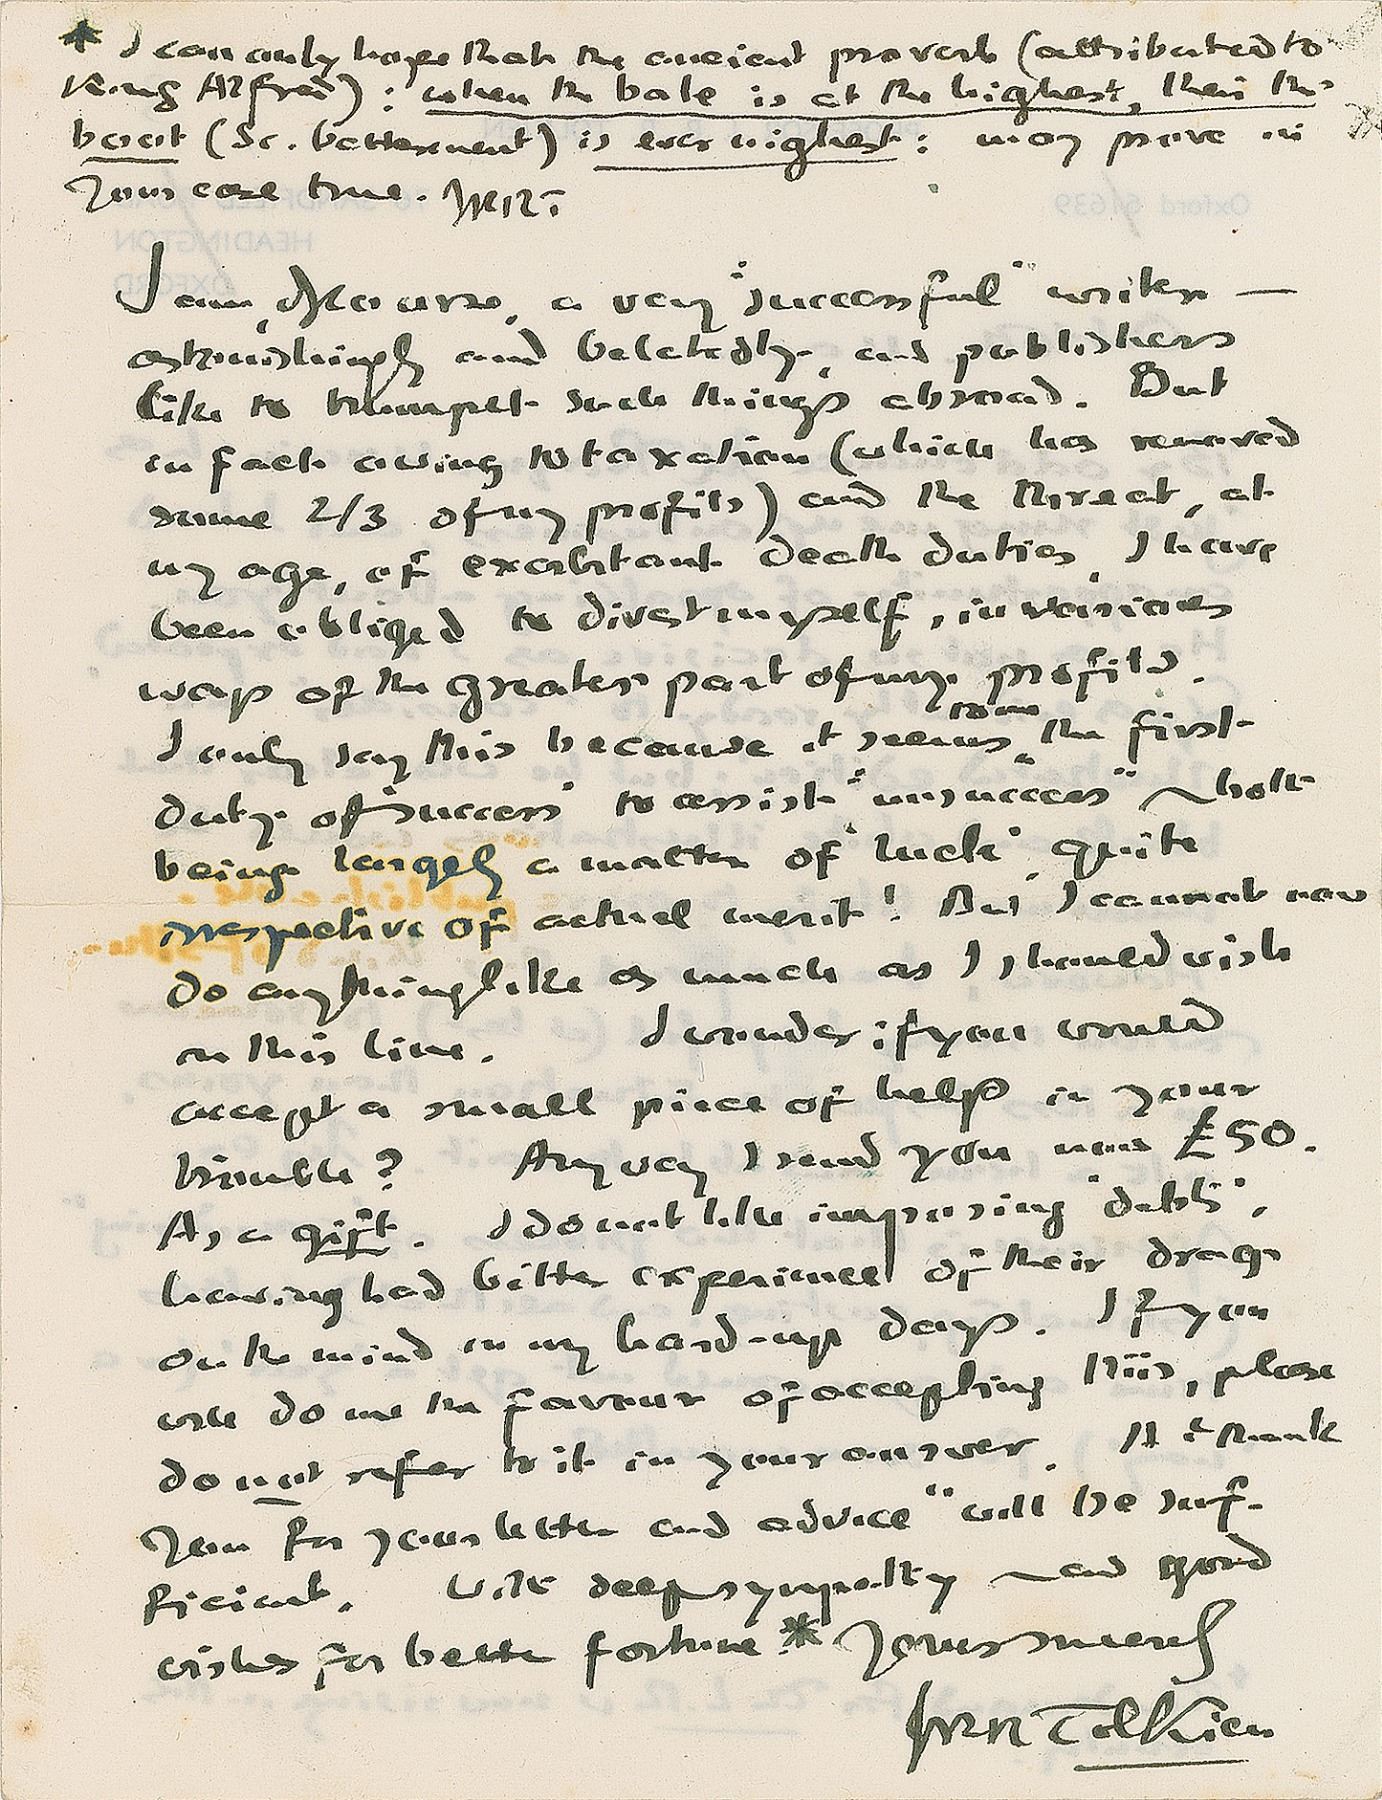 * I can only hope that the ancient proverb (attributed to
King Alfred): when the bale is at the highest, then the
boot (sc. betterment) is ever nighest: may prove in
your case true. JRRT.
Oxford 61639
HEADINGTON
OXFORD
I am, of course, a very "successful" writer —
astonishingly and belatedly, and publishers
like to trumpet such things abroad. But
in fact owing to taxation (which has removed
some 2/3 of my profits) and the threat, at
my age, of exorbitant death duties, I have
been obliged to divest myself, in various
ways of the greater part of my profits.
I only say this because it seems to me the first
duty of 'success' to assist "unsuccess" ~ both
being largely a matter of 'luck' quite
irrespective of actual merit! But I cannot now
do anything like as much as I should wish
on this line. I wonder if you would
accept a small piece of help in your
trouble? Anyway I send you now £50.
As a gift. I do not like imposing 'debts',
having had bitter experience of their drag
on the mind in my hard-up days. If you
will do me the favour of accepting this, please
do not refer to it in your answer. A "thank
you for your letter and advice" will be suf-
ficient. With deep sympathy and good
wishes for better fortune * Yours sincerely
JRR Tolkien